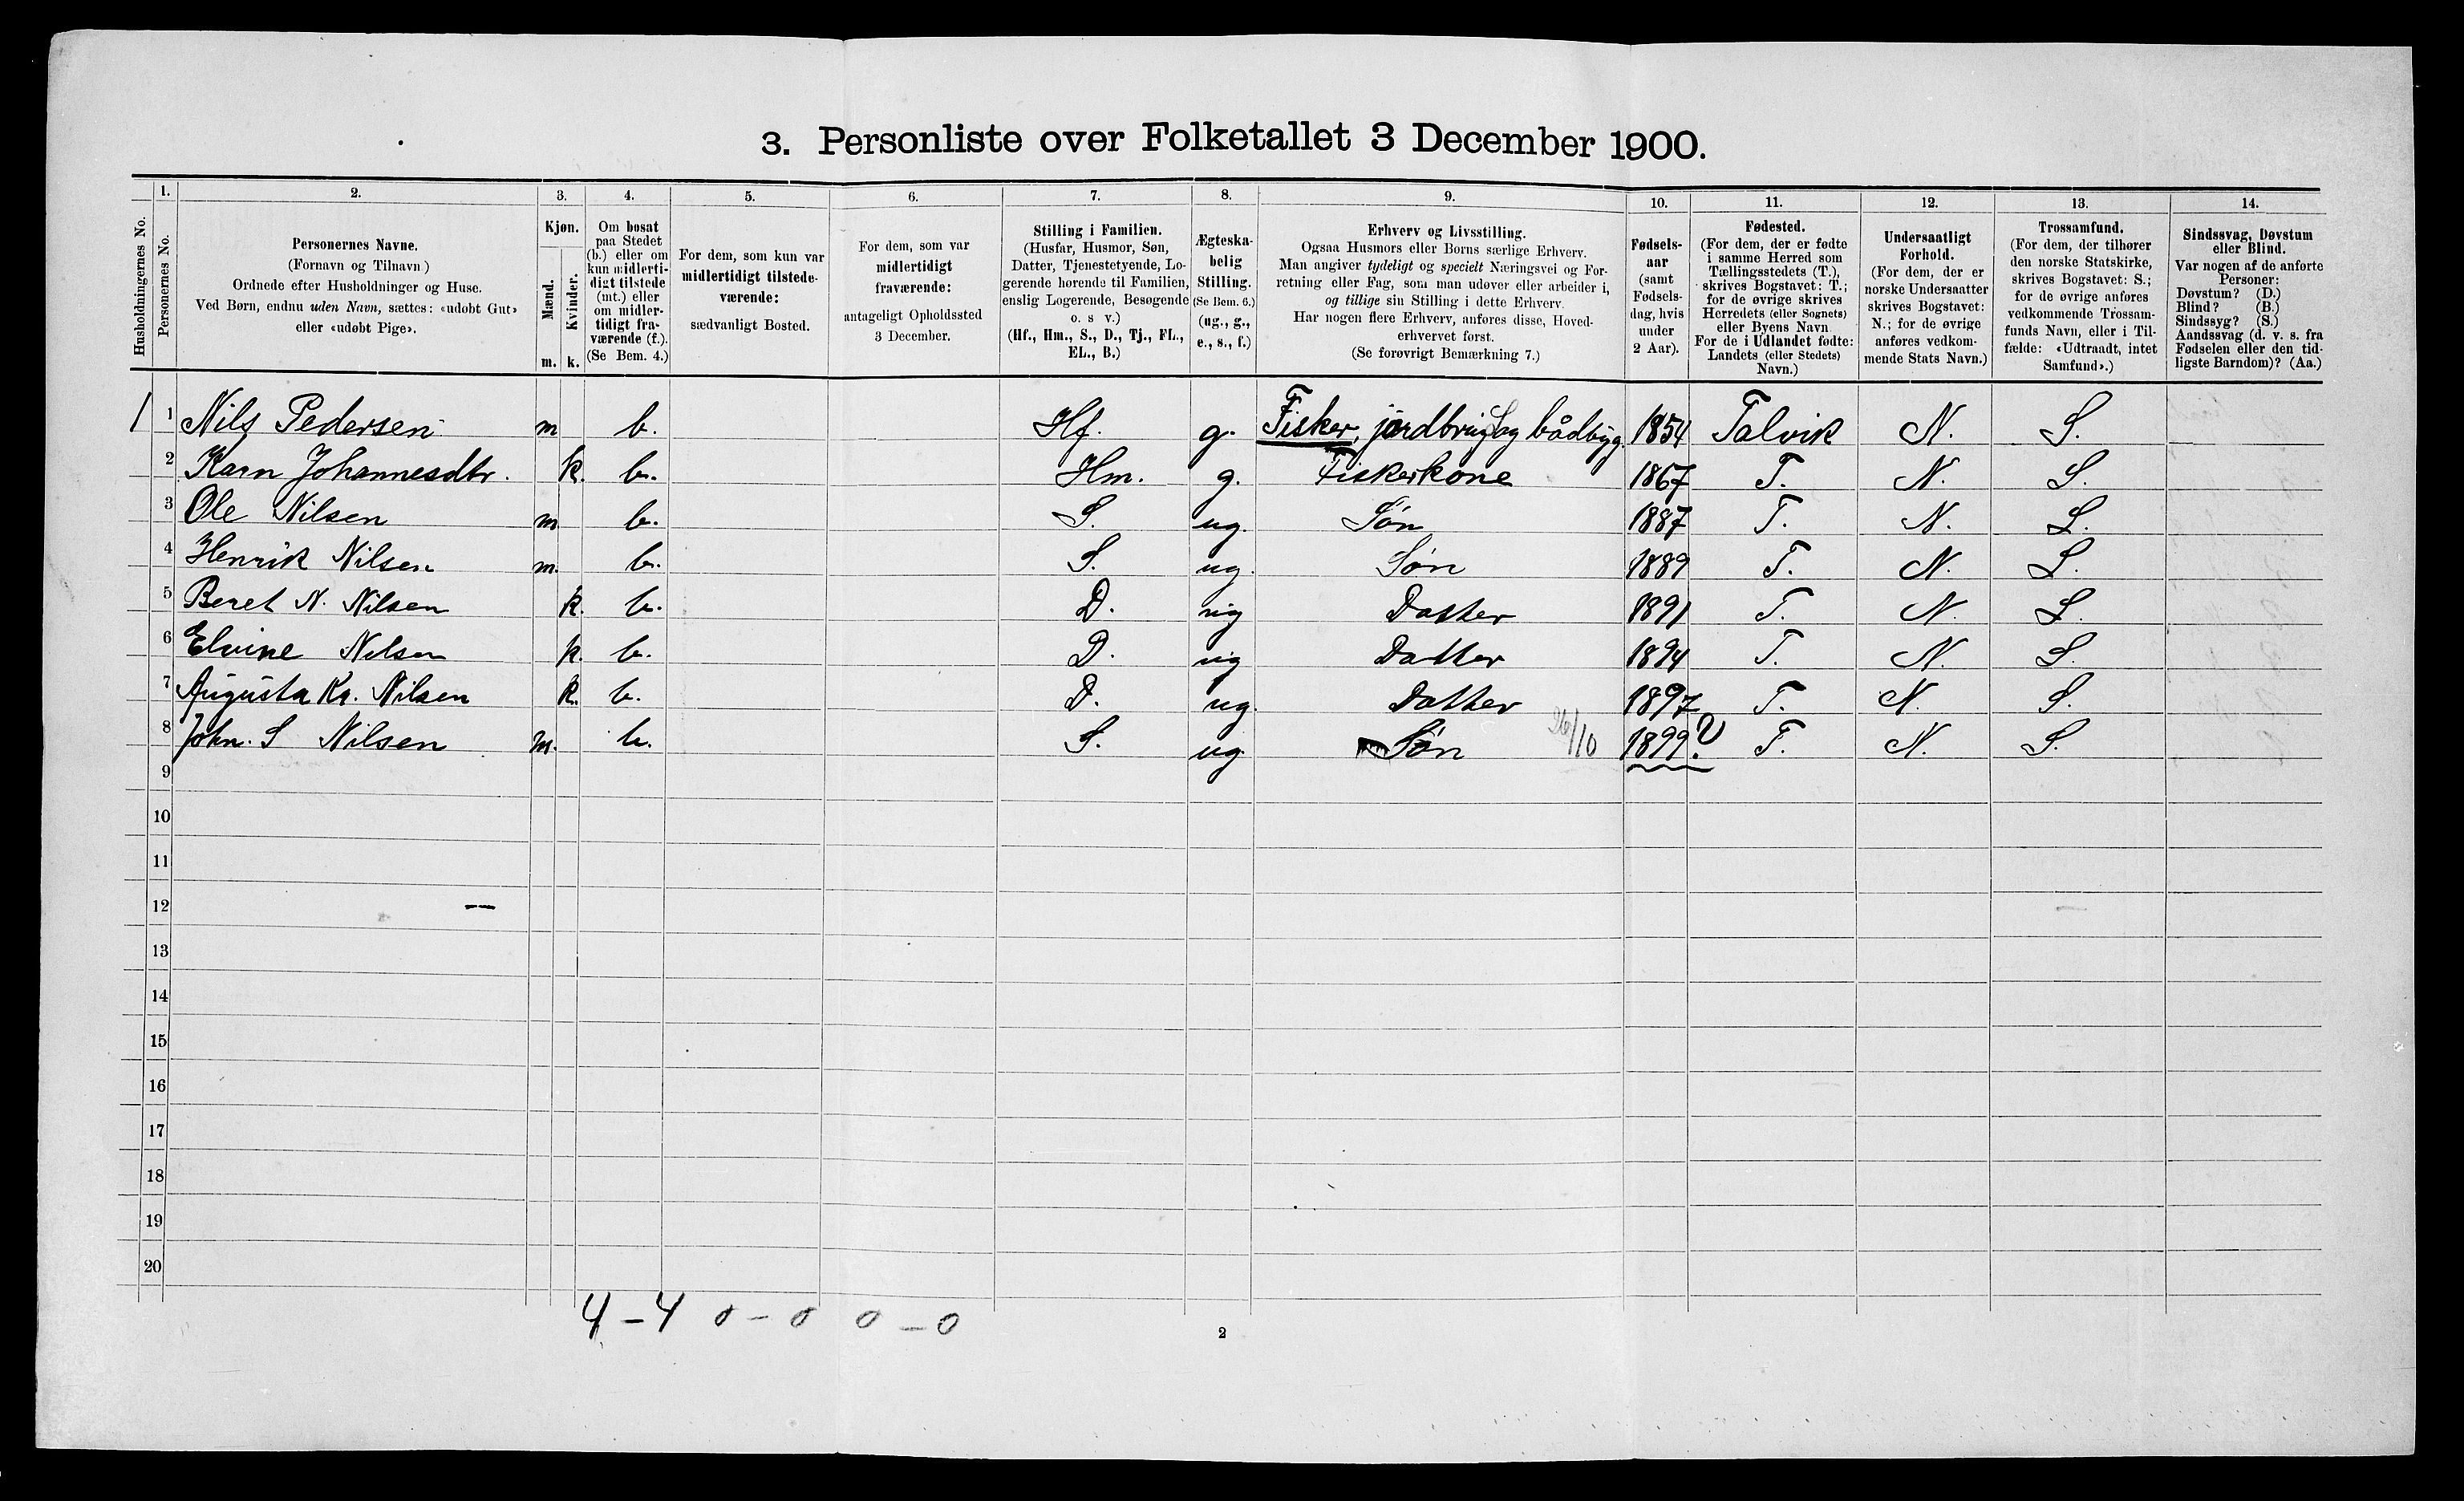 3. Personliste over Folketallet 3 December 1900.
Husholdningernes No.
1.
Personernes No.
2.
Personernes Navne.
(Fornavn og Tilnavn)
Ordnede efter Husholdninger og Huse.
Ved Børn, endnu uden Navn, sættes: «udøbt Gut»
eller «udøbt Pige».
3.
Kjøn.
Mænd.
Kvinder.
m. k.
4.
Om bosat
paa Stedet
(b.) eller om
kun midlerti-
digt tilstede
(mt.) eller
om midler-
tidigt fra-
værende (f.).
(Se Bem. 4.)
5.
For dem, som kun var
midlertidigt tilstede-
værende:
sædvanligt Bosted.
6.
For dem, som var
midlertidigt
fraværende:
antageligt Opholdssted
3 December.
7.
Stilling i Familien.
(Husfar, Husmor, Søn,
Datter, Tjenestetyende, Lo-
gerende hørende til Familien,
enslig Logerende, Besøgende
o. s v.)
(Hf., Hm., S., D., Tj., FL.,
EL., B.)
8.
Ægteska-
belig
Stilling.
(Se Bem. 6.)
(ug., g.,
e., s., f.)
9.
Erhverv og Livsstilling.
Ogsaa Husmors eller Børns særlige Erhverv.
Man angiver tydeligt og specielt Næringsvei og For-
retning eller Fag, som man udøver eller arbeider i,
og tillige sin Stilling i dette Erhverv.
Har nogen flere Erhverv, anføres disse, Hoved-
erhvervet først.
(Se forøvrigt Bemærkning 7.)
10.
Fødsels-
aar
(samt
Fødsels-
dag, hvis
under
2 Aar).
11.
Fødested.
(For dem, der er fødte
i samme Herred som
Tællingsstedets (T.),
skrives Bogstavet: T.;
for de øvrige skrives
Herredets (eller Sognets)
eller Byens Navn
For de i Udlandet fødte:
Landets (eller Stedets)
Navn.)
12.
Undersaatligt
Forhold.
(For dem, der er
norske Undersaatter
skrives Bogstavet:
N.; for de øvrige
anføres vedkom-
mende Stats Navn.)
13.
Trossamfund.
(For dem, der tilhører
den norske Statskirke,
skrives Bogstavet: S.;
for de øvrige anføres
vedkommende Trossam-
funds Navn, eller i Til-
fælde: «Udtraadt, intet
Samfund».)
14.
Sindssvag, Døvstum
eller Blind.
Var nogen af de anførte
Personer:
Døvstum? (D.)
Blind? (B.)
Sindssyg? (S.)
Aandssvag (d. v. s. fra
Fødselen eller den tid-
ligste Barndom)? (Aa.)
1 1 Nils Pedersen m b. Hf. g. Fisker, jordbrug og bådbyg. 1854 Talvik N. S.
2 Karn Johannesdtr. k. b. Hm. g. Fiskerkone 1867 T. N. S.
3 Ole Nilsen m b. S. ug. Søn 1887 T. N. S.
4 Henrik Nilsen m. b. S. ug. Søn 1889 T. N. S.
5 Beret N. Nilsen k. b. D. ug Datter 1891 T. N. S.
6 Elvine Nilsen k. b. D. ug Datter 1894 T. N. S.
7 Augusta Kr. Nilsen k. b. D. ug. Datter 1897 T. N. S.
8 John. S Nilsen m. b. S. ug Søn 26/10 1899? T. N. S.
9
10
11
12
13
14
15
16
17
18
19
20
4 – 4 0 – 0 0 – 0
2